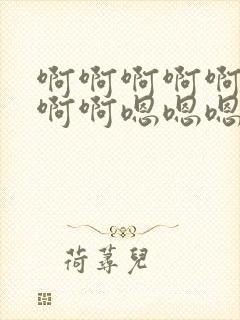 啊啊啊啊啊
啊啊嗯嗯嗯
荷蕁兒